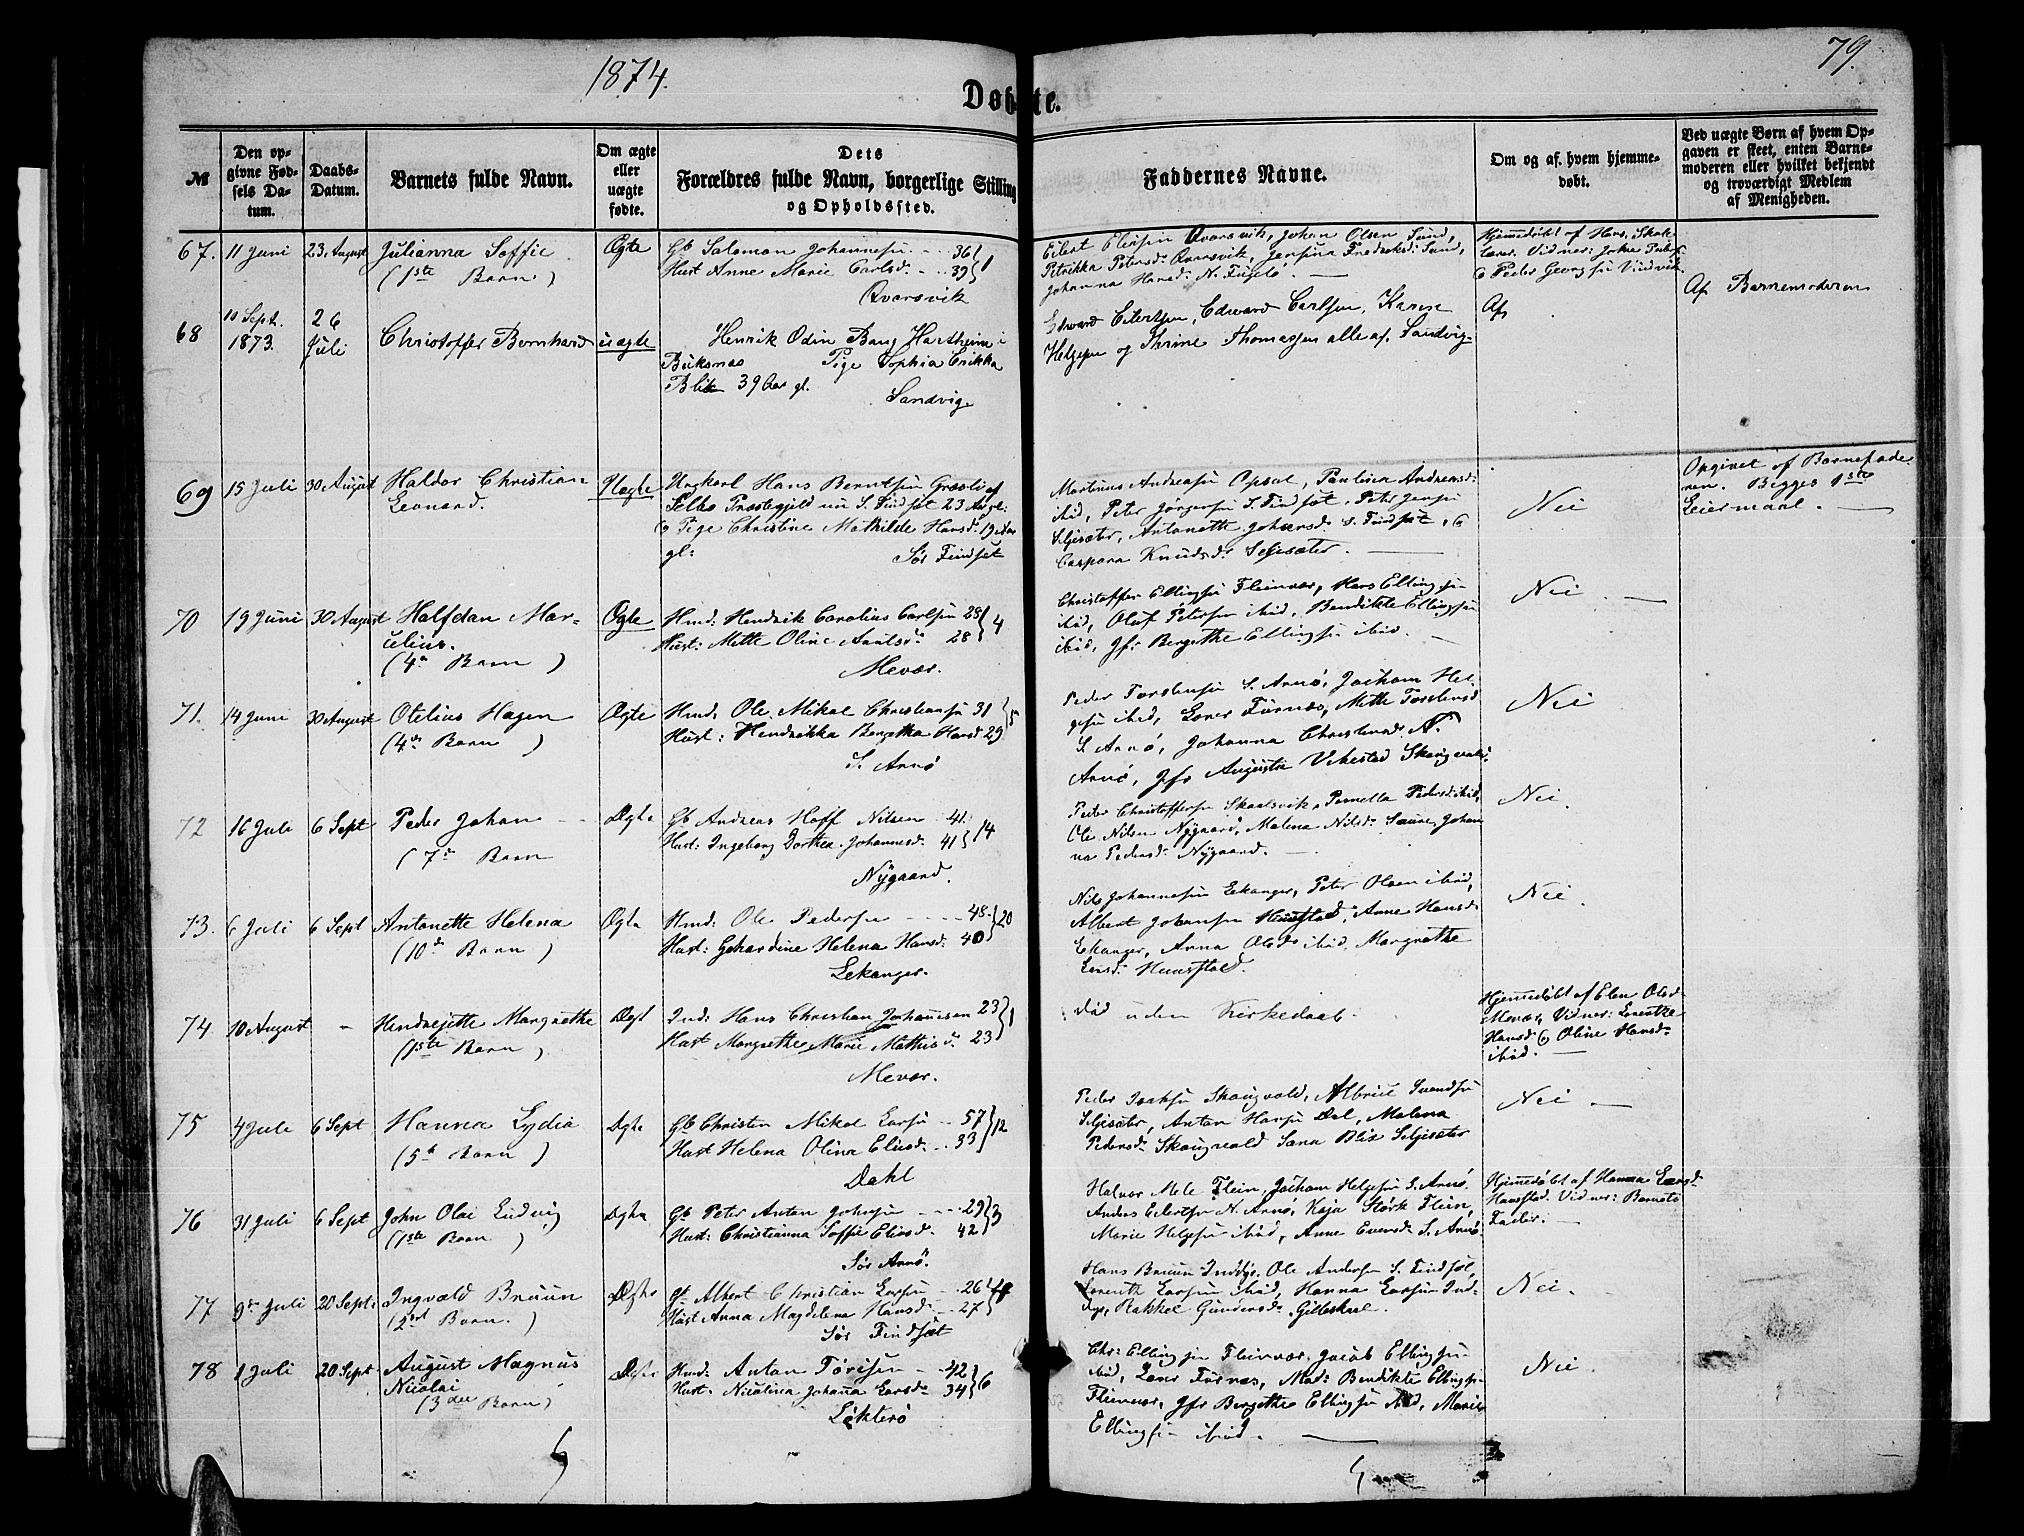 1874.
79.
Døbte.
№
Den opgivne Fødsels Datum.
Daabs-Datum.
Barnets fulde Navn.
Om ægte eller uægte fødte.
Dets Forældres fulde Navn, borgerlige Stilling og Opholdssted.
Faddernes Navne.
Om og af hvem hjemmedøbt.
Ved uægte Børn af hvem Opgaven er skeet, enten Barnemoderen eller hvilket bekjendt og troværdigt Medlem af Menigheden.
67. 11 Juni 23. August Julianna Soffie
(1ste Barn)
Ægte
Gb Salomon Johannesen 36
Hust Anne Marie Carlsd. 39 } 1
Qvarsvik
Eilert Elissen Qvarsvik, Johan Olsen Sund,
Petrikka Petersd. Qvarsvik, Jensina Fredriksd. Sund,
Johanna Hansd. N. Fuglø.
Hjemmedøbt af Hvs. Skole-
lærer. Vidner: Johna Peders.
& Peder Georgsen Vindvik
68 10 Sept. 1873. 26 Juli Christoffer Bernhard uægte
Henrik Odin Bang Hartheim i
Buksnæs Pige Sophia Erikka
Blix 39 Aar gl.
Sandvig
Edvard Eilertsen, Edvard Carlsen, Karen
Helgesen og Thrine Thomassen alle af Sandvig
Af
Af Barnemoderen
69 15 Juli 30 August Haldor Christian
Leonard.
Uægte
Ungkarl Hans Berntsen Græsli af
Selbo Præstegjeld nu S. Findset 23 Aar gl:
& Pige Christine Mathilde Hansd. 19 Aar
gl:
Sør Findset
Martinus Andreasen Opsal, Paulina Andreasd.
ibid, Peter Jørgensen S. Findset, Peter Jensen
Selsæter, Antonette Johansd. S. Findset, &
Caspara Knudsd. Selsæter.
Nei
Opgivet af Barnefade-
ren. Begges 1ste
Leiermaal.
70 19 Juni 30 August Halfdan Mar-
celius.
(4de Barn)
Ægte
Hmd: Hendrik Carolius Carlsen 28
Hust: Mette Oline Arntsd. 28 } 4
Mevær.
Christoffer Ellingsen Fleinvær, Hans Ellingsen
ibid, Oluf Petersen ibid, Bendikte Ellingsen
ibid, Jfr Bergethe Ellingsen ibid.
Nei
71. 14 Juni 30 August Otelius Hagen
(4de Barn)
Ægte
Hmd. Ole Mikal Christiansen 31
Hust: Hendrikka Bergetha Hansd. 29 } 5
S. Arnø
Peder Torstensen S. Arnø, Jocham Hel-
gesen ibid, Lener Furnes, Mette Torstensd.
S. Arnø, Johanna Christensd. N.
Arnø, Jfr Augusta Vikestad Skaugvold.
Nei
72 16 Juli 6 Sept Peder Johan
(7de Barn
Ægte
Gb Andreas Hoff Nilsen 41
Hust: Ingeborg Dorthea Johannesd. 41 } 14
Nygaard.
Peder Christoffersen Skaalsvik, Pernella Pedersd. ibid,
Ole Nilsen Nygaard, Malena Nilsd. Saura, Johan
na Pedersd. Nygaard.
Nei.
73. 6 Juli 6 Sept Antonette Helena
(10de Barn)
Ægte
Hmd: Ole Pedersen 48
Hust: Gehardine Helena Hansd. 40 } 20
Lekanger.
Nils Johannesen Lekanger, Peter Olsen ibid,
Albert Johansen Hunstad, Anne Hansd.
Lekanger, Anna Olsd. ibid, Margrethe
Larsd. Hunstad.
Nei.
74 10 August - Hendrejette Margrethe
(1ste Barn)
Ægt
Ind: Hans Christian Johannesen 23
Hust Margrethe Marie Mathisd. 23 } 1
Mevær.
død uden Kirkedaab.
Hjemmedøbt af Elen Olsd.
Mevær, Vidner: Lorentze
Hansd. & Oline Hansd.
ibid.
75 4 Juli 6 Sept Hanna Lydia
(5te Barn)
Ægte
Gb Christen Mikal Larsen 57
Hust Helena Olina Eliasd. 33 } 12
Dahl
Peder Isaksen Skaugvold, Albriet Svendsen
Selsæter, Anton Hansen Dal, Malena
Pedersd. Skaugvold Sara Blix Selsæter
Nei
76 31 Juli 6 Sept John Olai Ludvig
(1ste Barn)
Ægte
Gb Peter Anton Johnsen 29
Hust: Christianna Soffie Eliasd. 42 } 3
Sør Arnø.
Halvor Mele Flein, Jocham Helgesen S. Arnø,
Anders Eilertsen N. Arnø, Kaja Størk Flein,
Marie Helgesen ibid, Anne Evensd. S. Arnø.
Hjemmedøbt af Hanna Larsd.
Hunstad. Vidner: Barnets
Fader.
77 9de Juli 20 Sept: Ingvald Bruun
(2det Barn.)
Ægte
Gb Albert Christian Larsen 26
Hust Anna Magdelena Hansd. 27 } 4
Sør Findset
Hans Bruun Inddyr, Ole Andersen S. Findset,
Lorentz Larsen ibid, Hanna Larsen Ind-
dyr, Rakkel Gundersd. Gilleskaal.
Nei.
78 1 Juli 20 Sept August Magnus
Nicolai
(3die Barn)
Ægte
Hmd: Anton Tørrisen 42
Hust: Nicolina Johanna Larsd. 34 } 6
Løkterø
Chr: Ellingsen Fleinvær, Jacob Ellingsen
ibid, Lener Furnes, Mad: Bendikte Ellingsen
Fleinvær, Jfr Bergethe Ellingsen ibid, Marie
Ellingsen ibid.
Nei